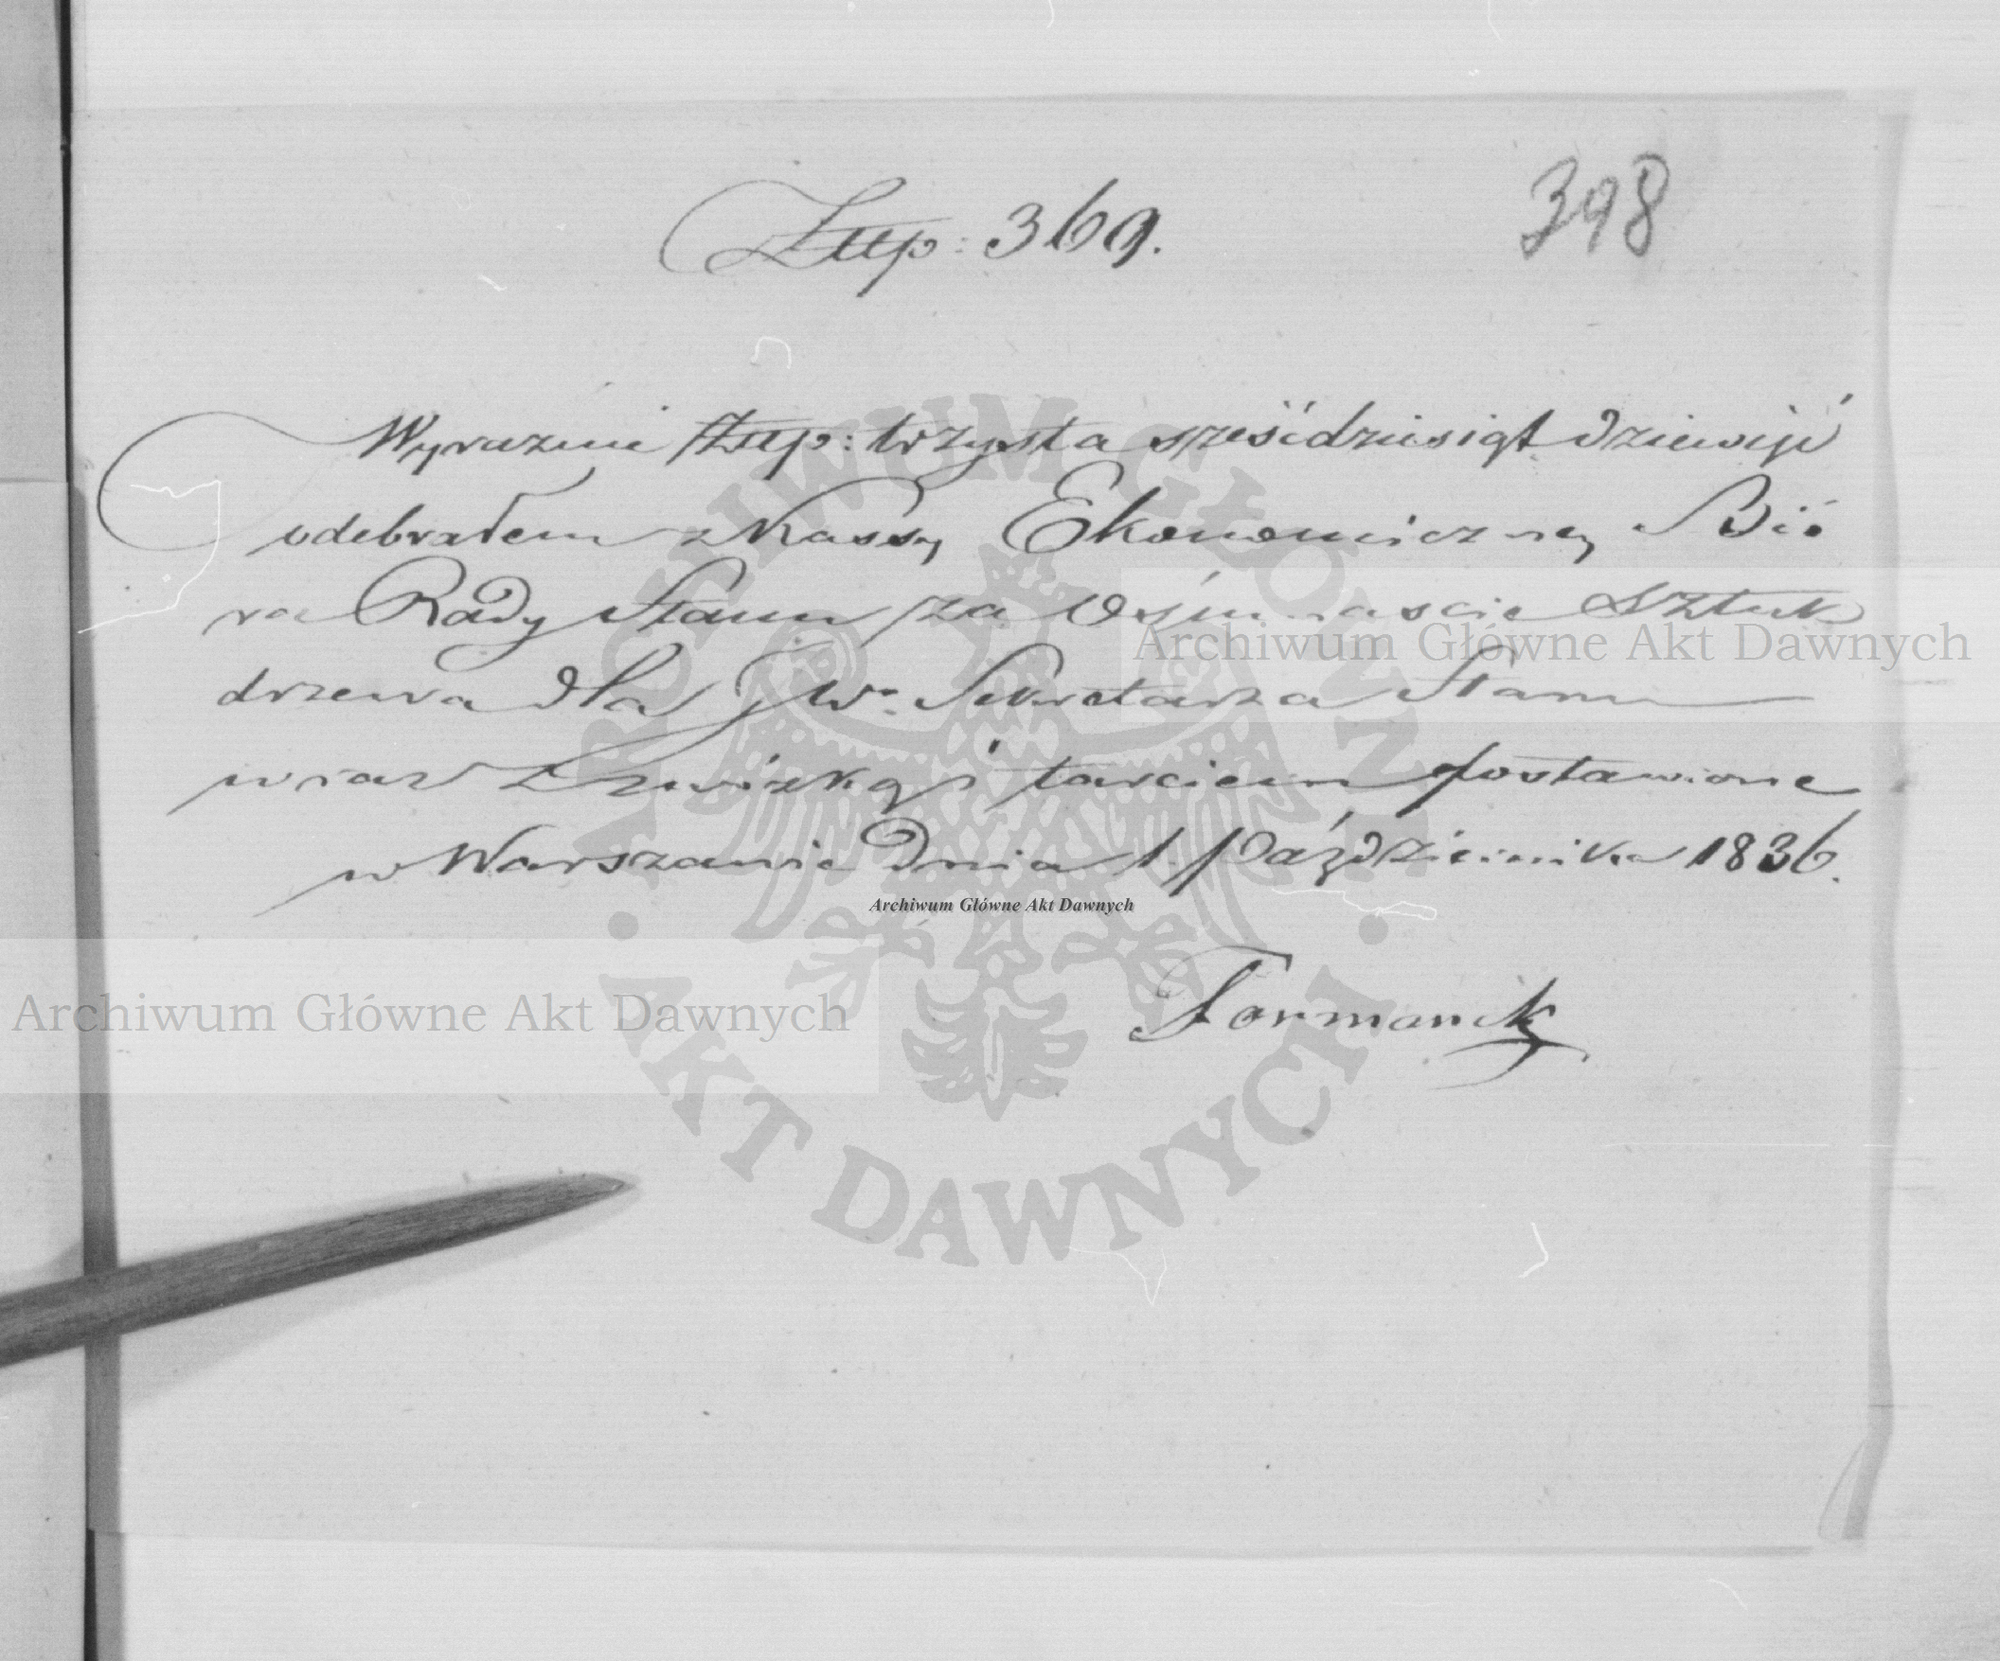 398
Złtp: 369.
Wyraznie Złtp: trzysta sześćdziesiąt dziewięć
odebrałem z Kassy Ekonomiczney Bió
ra Rady Stanu za Ośmnaście Sztuk
drzewa dla JW. Sekretarza Stanu
wraz z zwózką i tarciem dostawione
w Warszawie Dnia 1. Października 1836.
Formanek
ARCHIWUM GŁÓWNE
AKT DAWNYCH
Archiwum Główne Akt Dawnych
Archiwum Główne Akt Dawnych
Archiwum Główne Akt Dawnych